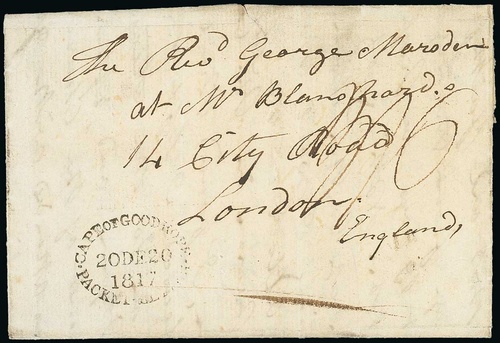 The Revd George Marsden
at Mr Blanshard's
14 City Road
London.
England,
CAPE OF GOOD HOPE
20 DE 20
1817
PACKET